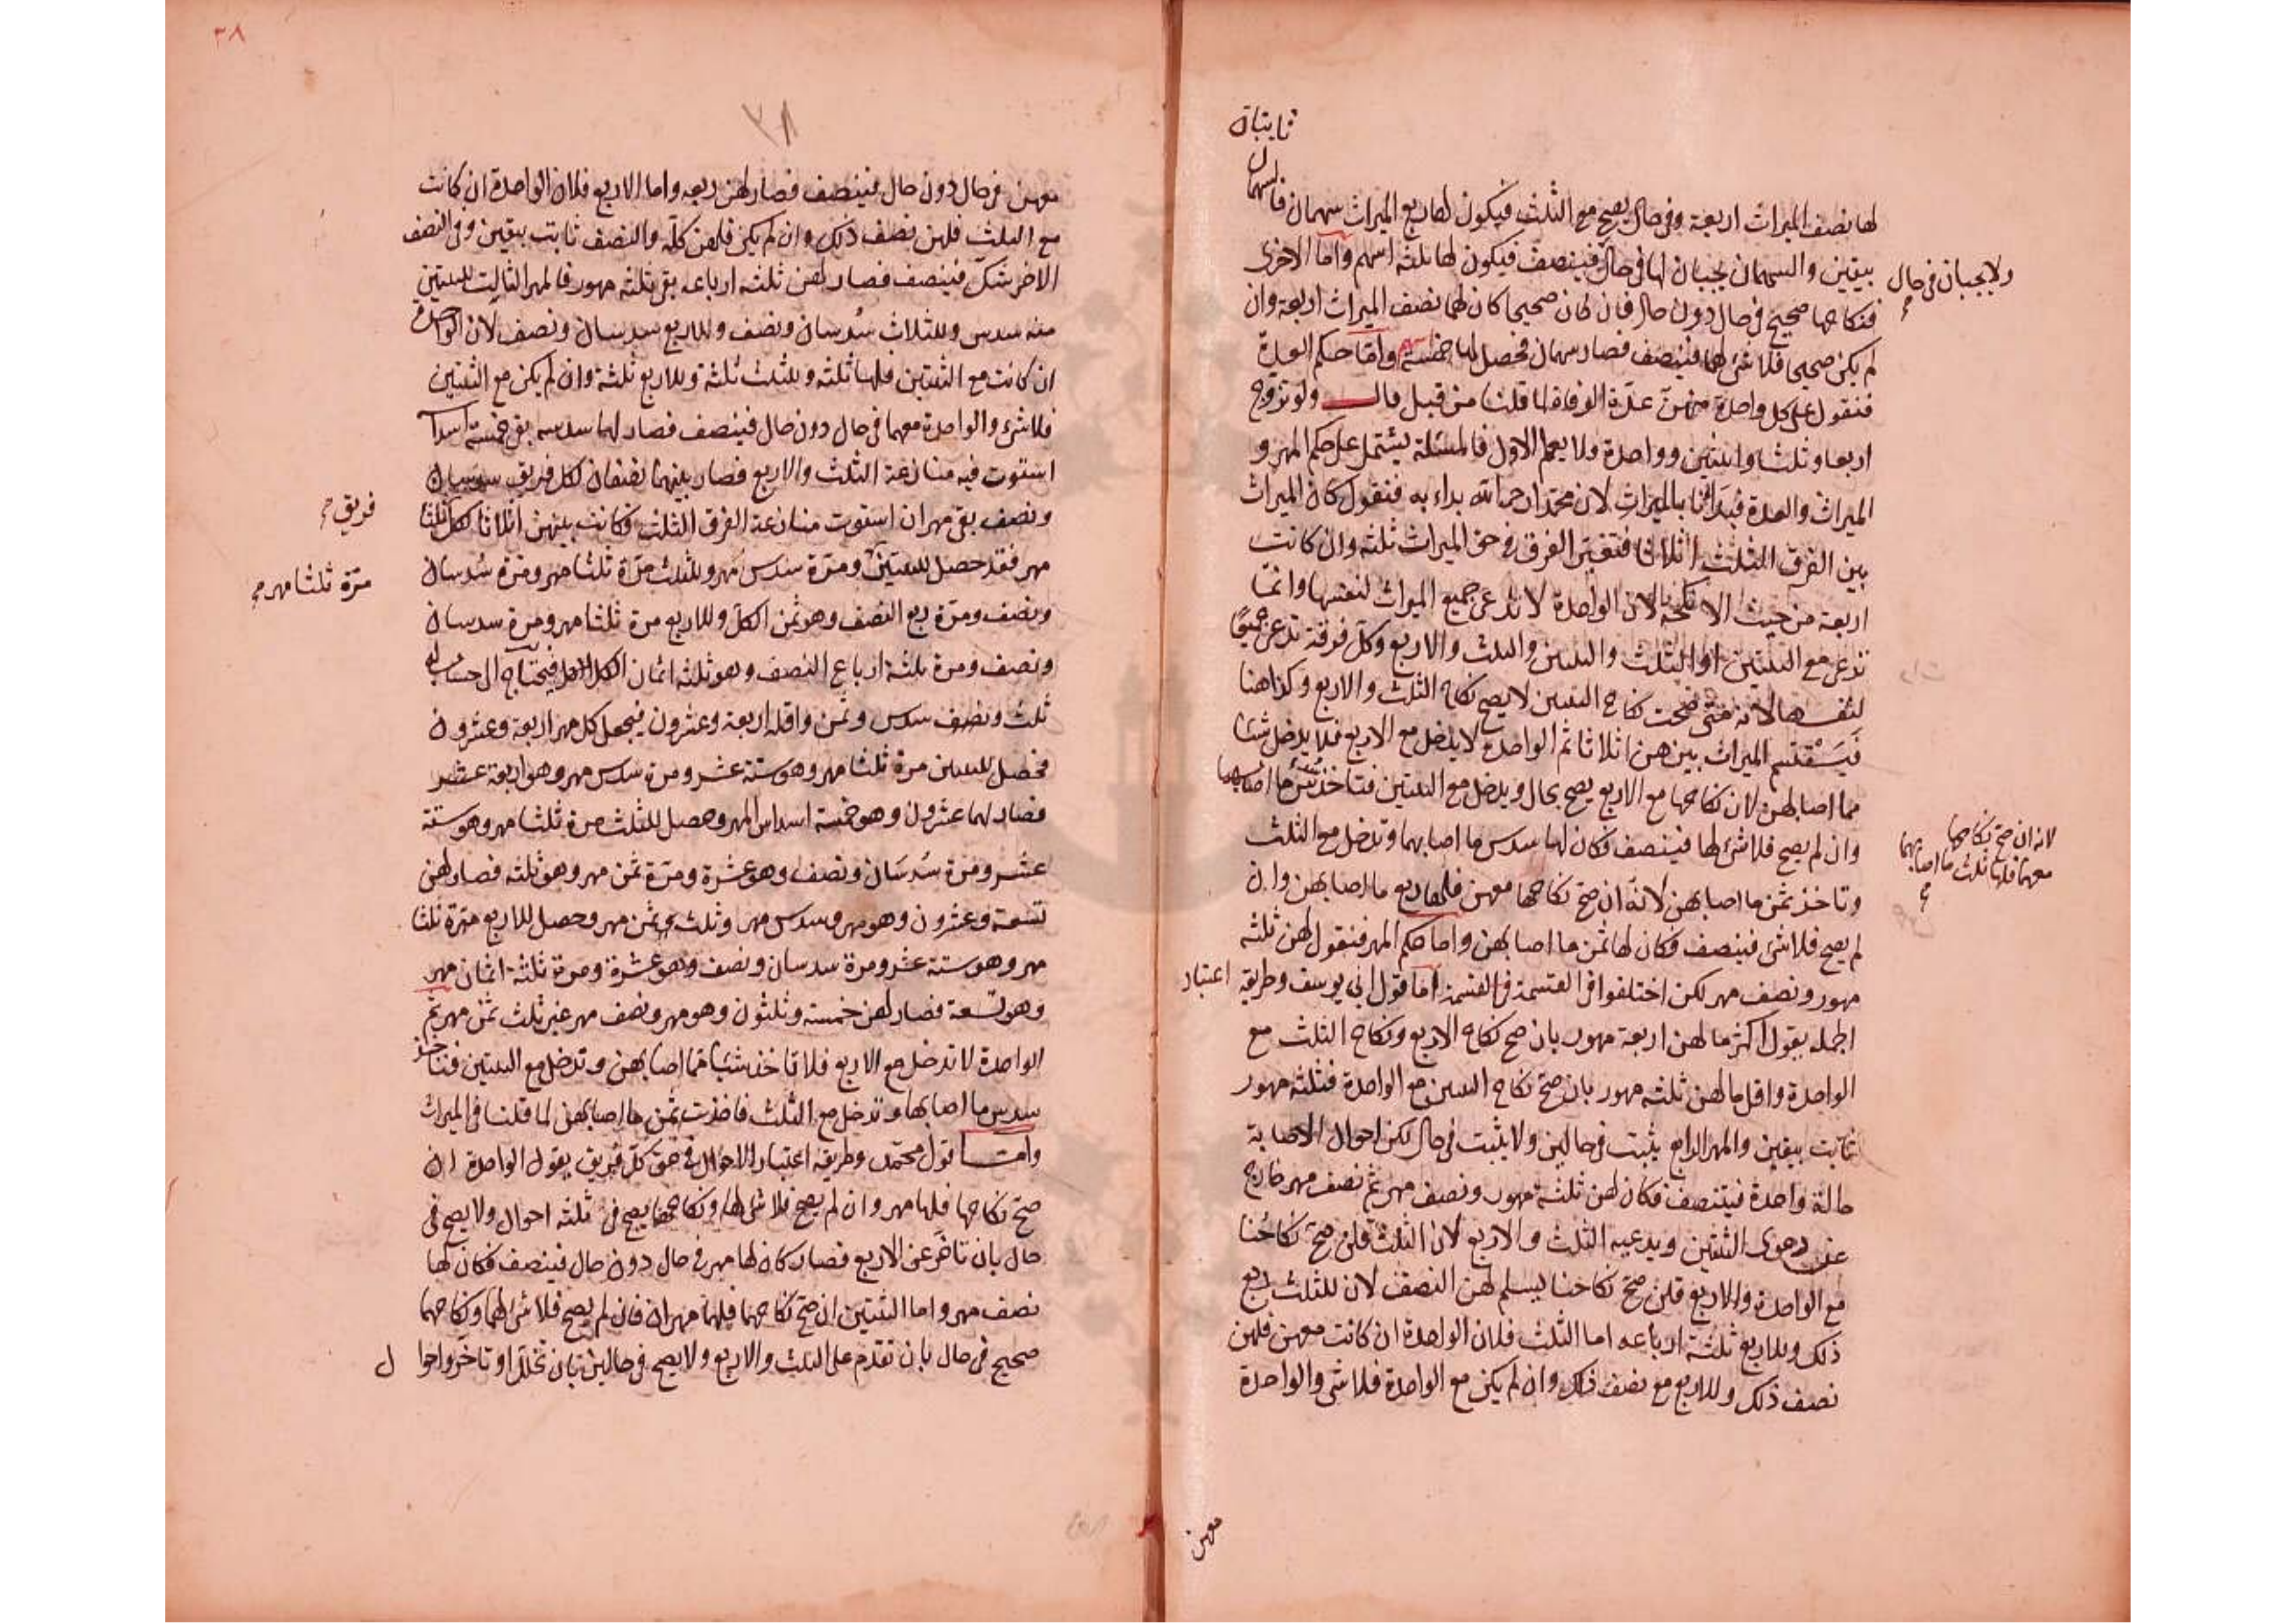 ثابتان
لها نصف الميراث اربعة وفي حال يصح مع الثلث فيكون لها ربع الميراث سهمان فالسهمان
بيقين والسهمان يجبان لها في حال فينصف فيكون لها ثلثة اسهم واما الاخرى
ولا يجبان في حال
فنكاحها صحيح في حال دون حال فان كان صحيحا كان لهما نصف الميراث اربعة وان
لم يكن صحيحا فلا شئ لهما فينصف فصار سهمان فحصل لها خمسة اسهم واما حكم العدة
فنقول على كل واحدة منهن عدة الوفاة لما قلنا من قبل قال ولو تزوج
اربعا وثلثا واثنتين وواحدة ولا يعلم الاول فالمسئلة يشتمل على حكم المهر و
الميراث والعدة فبدانا بالميراث لان محمدا رحمه الله بداء به فنقول كان الميراث
بين الفرق الثلث اثلاثا فتعتبر الفرق في حق الميراث ثلثه وان كانت
اربعة من حيث الانكحة لان الواحدة لا تدعي جميع الميراث لنفسها وانما
تدعي مع الثنتين او الثلث والثنتين والثلث والاربع وكل فرقة تدعي جميعا
لنفسها لانه متى صحت نكاح الثنتين لا يصح نكاح الثلث والاربع وكذا هنا
فيستقيم الميراث بينهن اثلاثا ثم الواحدة لا يدخل مع الاربع فلا يدخل شئا
مما اصابهن لان نكاحها مع الاربع يصح بحال ويدخل مع الثنتين فتاخذ سدس ما اصابهما
لانه ان صح نكاحها
معهما فلها ثلث ما اصابهما
وان لم يصح فلا شئ لها فينصف فكان لها سدس ما اصابهما وتدخل مع الثلث
وتاخذ ثمن ما اصابهن لانه ان صح نكاحها معهن فلها ربع ما اصابهن وان
لم يصح فلا شئ فينصف فكان لها ثمن ما اصابهن واما حكم المهر فنقول لهن ثلثه
مهور ونصف مهر لكن اختلفوا في القسمة اما قول ابي يوسف وطريقه اعتبار
الجمله يقول اكثر ما لهن اربعة مهور بان صح نكاح الاربع ونكاح الثلث مع
الواحدة واقل ما لهن ثلثه مهور بان صح نكاح الثنتين مع الواحدة فثلثه مهور
ثابت بيقين والمهر الرابع يثبت في حالين ولا يثبت في حال لكن احوال الاصابة
حالة واحدة فيتنصف فكان لهن ثلثة مهور ونصف مهر ثم نصف مهر خارج
عن دعوى الثنتين ويدعيه الثلث والاربع لان الثلث قلن صح نكاحنا
مع الواحدة والاربع قلن صح نكاحنا ليسلم لهن النصف لان للثلث ربع
ذلك وللاربع ثلثة ارباعه اما الثلث فلان الواحدة ان كانت معهن فلهن
نصف ذلك وللاربع مع نصف ذلك وان لم يكن مع الواحدة فلا شئ والواحدة
معهن
٣٨
٣٨
معهن في حال دون حال فينصف فصار لهن ربعه واما الاربع فلان الواحدة ان كانت
مع الثلث فلهن نصف ذلك وان لم يكن فلهن كله والنصف ثابت بيقين وفي النصف
الاخر شك فينصف فصار لهن ثلثة ارباعه بقي ثلثه مهور فالمهر الثالث للثنتين
منه سدس وللثلاث سدسان ونصف وللاربع سدسان ونصف لان الواحدة
ان كانت مع الثنتين فلهما ثلثه وللثلث ثلثه وللاربع ثلثه وان لم يكن مع الثنتين
فلا شئ والواحدة معهما في حال دون حال فينصف فصار لهما سدسه بقي خمسة اسدا
استوت فيه منازعة الثلث والاربع فصار بينهما نصفان لكل فريق سدسان
ونصف بقي مهران استوت منازعة الفرق الثلث فكانت بينهن اثلاثا لكل ثلثا
فريق
مهر فقد حصل للثنتين ومرة سدس مهر وللثلث مرة ثلثا مهر ومرة سدسان
مرة ثلثا مهر
ونصف ومرة ربع النصف وهو ثمن الكل وللاربع مرة ثلثا مهر ومرة سدسان
ونصف ومرة ثلثة ارباع النصف وهو ثلثه اثمان الكل فيحتاج الى حساب له
ثلث ونصف سدس وثمن واقله اربعة وعشرون فيجعل كل مهر اربعة وعشرون
فحصل للثنتين مرة ثلثا مهر وهو ستة عشر ومرة سدس مهر وهو اربعة عشر
فصار لهما عشرون وهو خمسة اسداس المهر وحصل للثلث مرة ثلثا مهر وهو ستة
عشر ومرة سدسان ونصف وهو عشرة ومرة ثمن مهر وهو ثلثه فصار لهن
تسعة وعشرون وهو مهر وسدس مهر وثلث وثمن مهر وحصل للاربع مرة ثلثا
مهر وهو ستة عشر ومرة سدسان ونصف وهو عشرة ومرة ثلثة اثمان مهر
وهو تسعة فصار لهن خمسة وثلثون وهو مهر ونصف مهر غير ثلث ثمن مهر ثم
الواحدة لا تدخل مع الاربع فلا تاخذ شيئا مما اصابهن وتدخل مع الثنتين فتاخذ
سدس ما اصابها وتدخل مع الثلث فاخذت ثمن ما اصابهن لما قلنا في الميراث
واما قول محمد وطريقه اعتبار الاحوال في حق كل فريق يقول الواحدة ان
صح نكاحها فلها مهر وان لم يصح فلا شئ لها ونكاحها يصح في ثلثه احوال ولا يصح في
حال بان تاخر عن الاربع فصار كان لها مهر في حال دون حال فينصف فكان لها
نصف مهر واما الثنتين ان صح نكاحهما فلهما مهران فان لم يصح فلا شئ لهما ونكاحهما
صحيح في حال بان تقدم على الثلث والاربع ولا يصح في حالين بان تخلل او تاخر واحوا ل